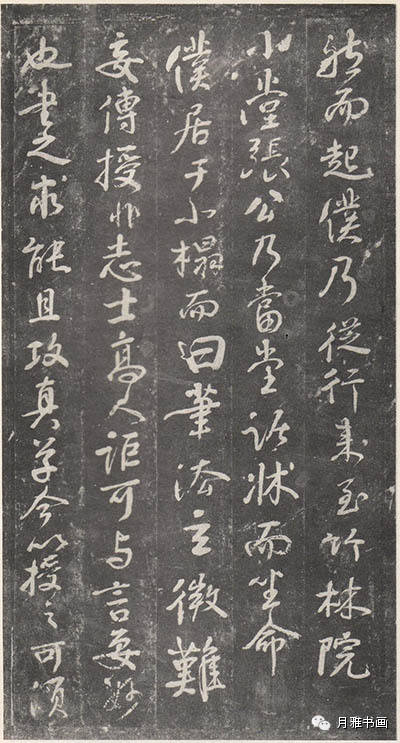 然而起僕乃從行來至竹林院
小堂張公乃當堂踞牀而坐命
僕居于小榻而曰筆法玄微難
妄傳授非志士高人詎可与言要妙
也書之求能且攻真草今以授之可須
月雅书画